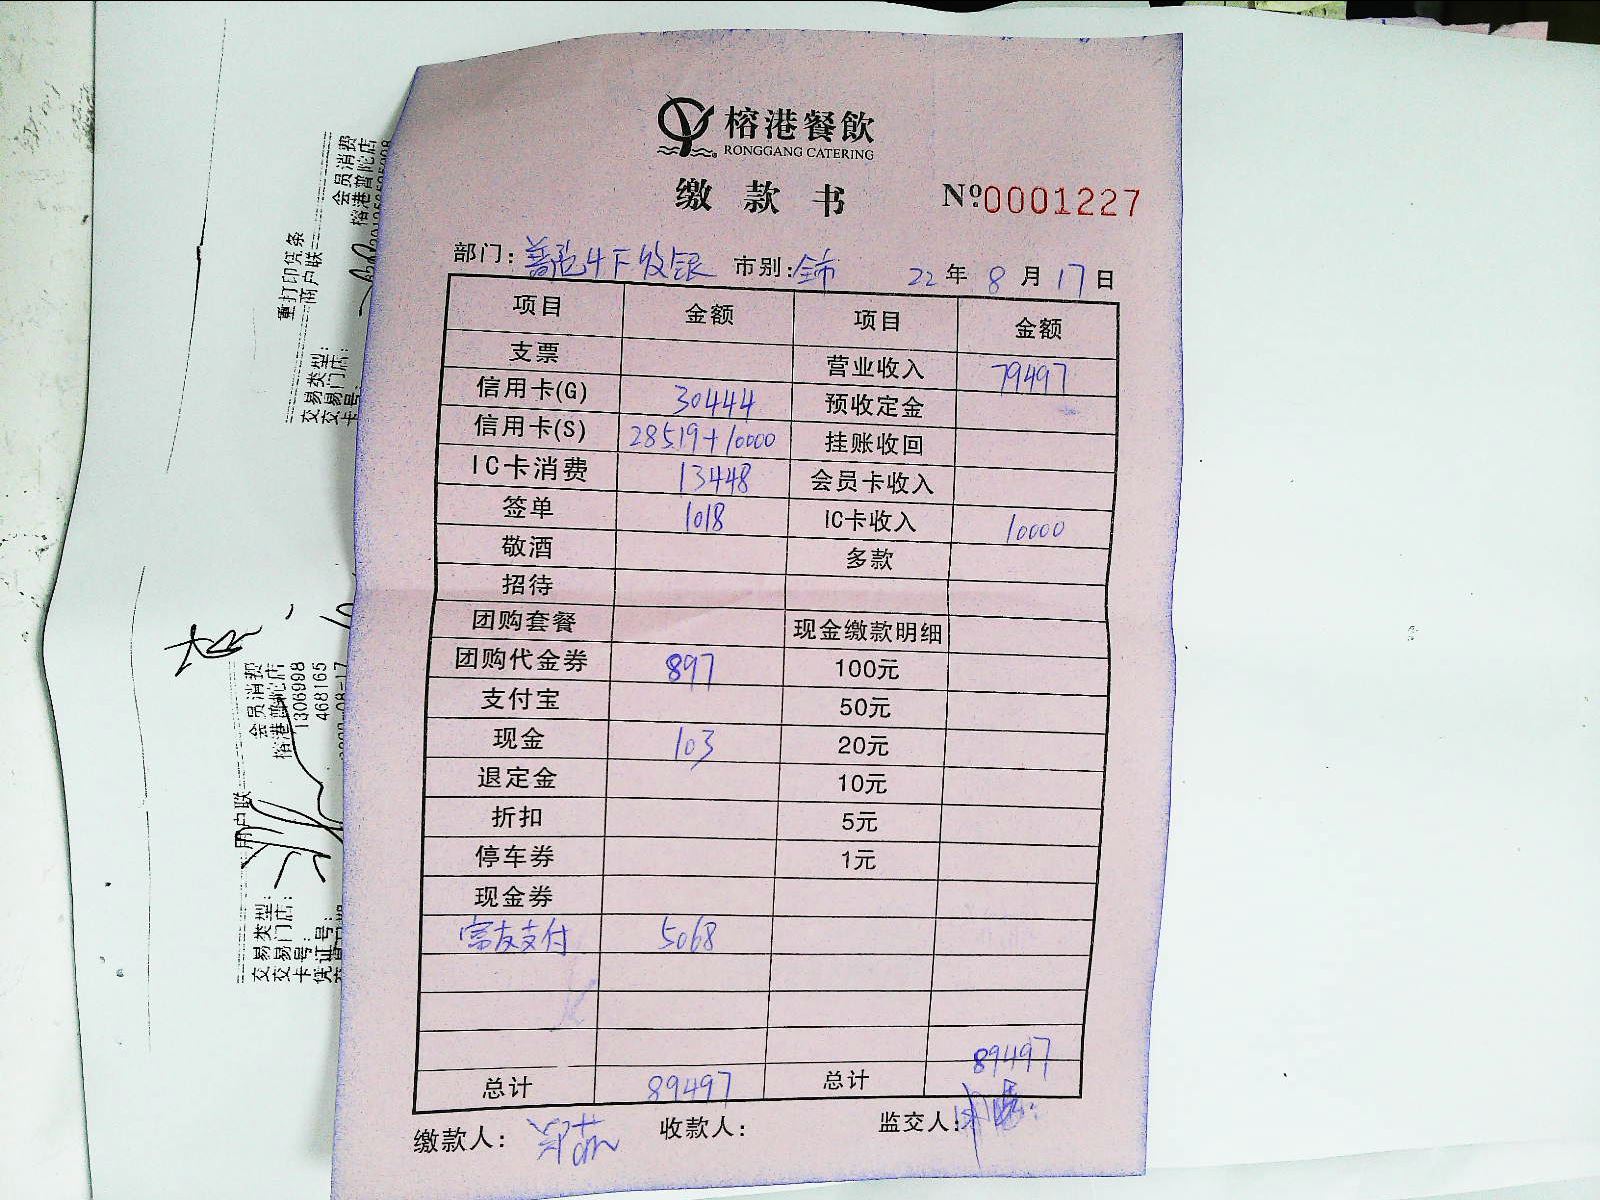 榕港餐飲
RONGGANG CATERING
缴款书 Nº:0001227
部门: 普陀4F收银 市别: 全市 22年8月17日
项目 金额 项目 金额
支票 营业收入 79497
信用卡(G) 30444 预收定金
信用卡(S) 28519+10000 挂账收回
IC卡消费 13448 会员卡收入
签单 1018 IC卡收入 10000
敬酒 多款
招待
团购套餐 现金缴款明细
团购代金券 897 100元
支付宝 50元
现金 103 20元
退定金 10元
折扣 5元
停车券 1元
现金券
富友支付 5068
总计 89497 总计 89497
缴款人: 收款人: 监交人:
重打印凭条
商户联
交易类型: 会员消费
交易门店: 榕港普陀店
卡号:
用户联
交易类型: 会员消费
交易门店: 榕港普陀店
卡号: 1306998
凭证号: 468165